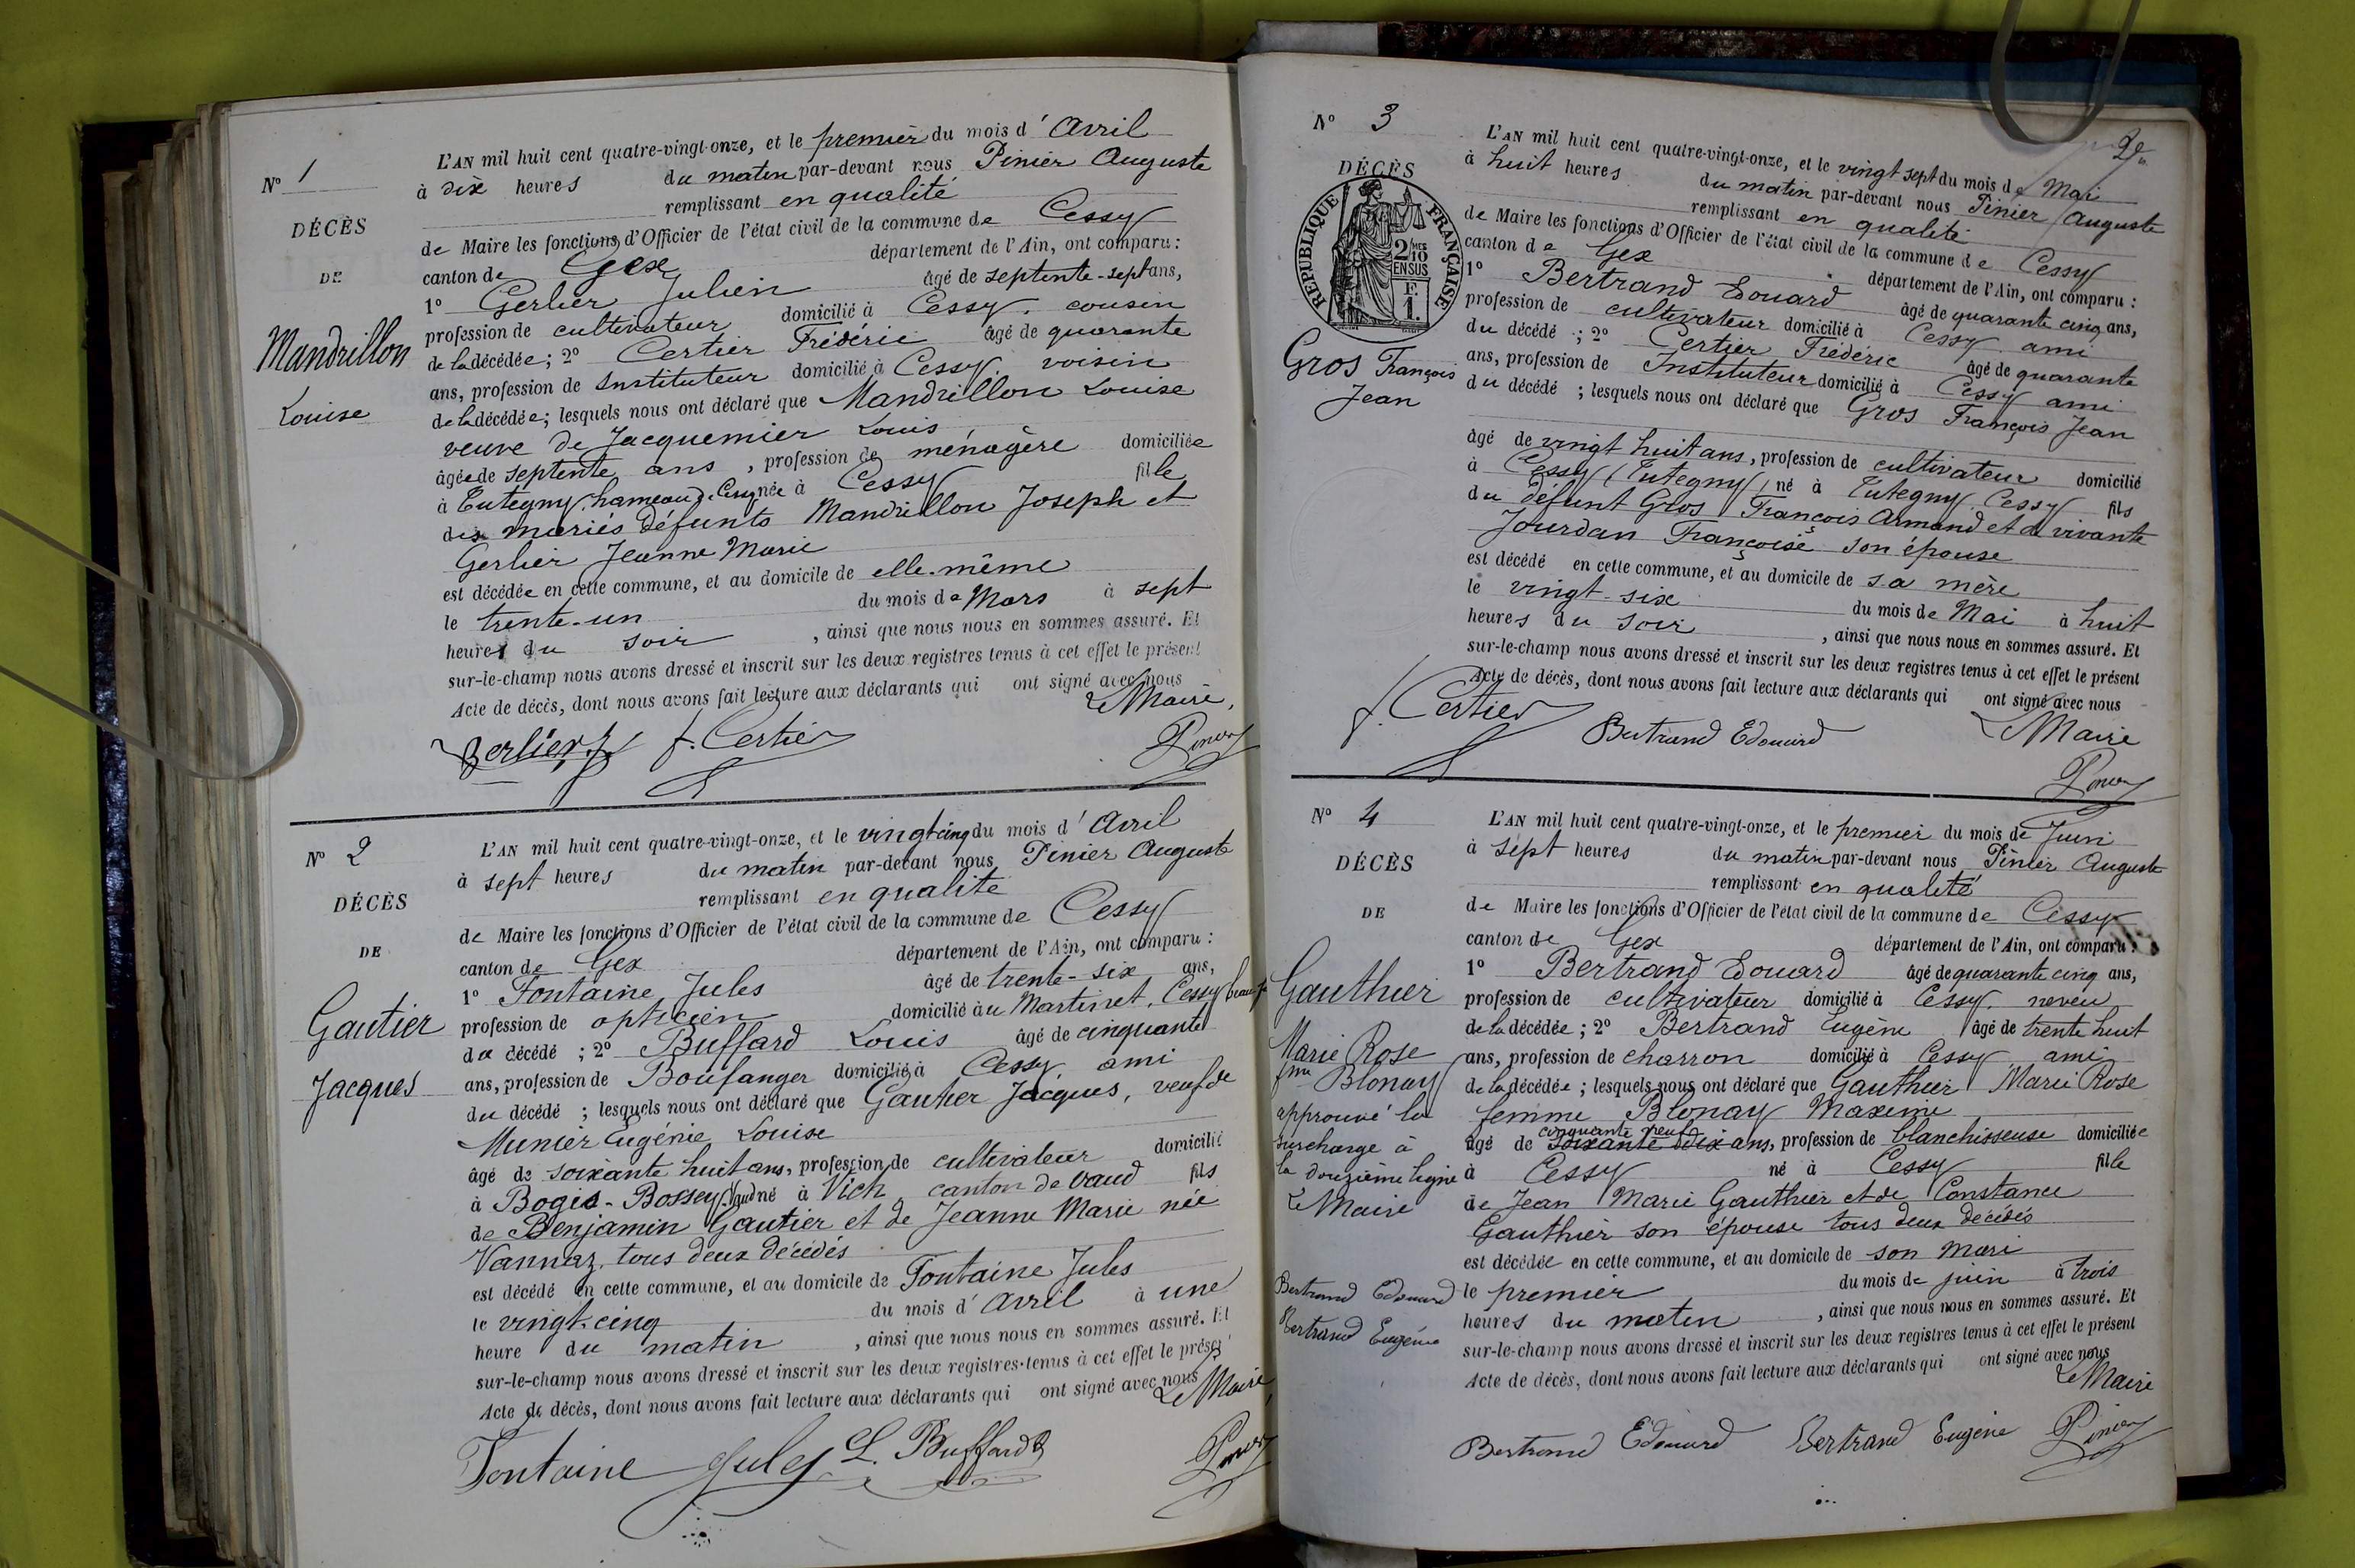 N° 1
DÉCÈS
DE
Mandrillon
Louise
L'AN mil huit cent quatre-vingt-onze, et le premier du mois d' Avril
à dix heures du matin par-devant nous Pinier Auguste
remplissant en qualité
de Maire les fonctions d'Officier de l'état civil de la commune de Cessy
canton de Gex département de l'Ain, ont comparu :
1° Gerlier Julien âgé de septente-sept ans,
profession de cultivateur domicilié à Cessy, cousin
de la décédée ; 2° Certier Frédéric âgé de quarante
ans, profession de Instituteur domicilié à Cessy, voisin
de la décédée ; lesquels nous ont déclaré que Mandrillon Louise
veuve de Jacquemier Louis
âgée de septente ans, profession de ménagère domiciliée
à Tutegny, hameau de Cessy née à Cessy fille
des mariés défunts Mandrillon Joseph et
Gerlier Jeanne Marie
est décédée en cette commune, et au domicile de elle-même
le trente-un du mois de Mars à sept
heures du soir , ainsi que nous nous en sommes assuré. Et
sur-le-champ nous avons dressé et inscrit sur les deux registres tenus à cet effet le présent
Acte de décès, dont nous avons fait lecture aux déclarants qui ont signé avec nous
Le Maire,
Gerlier J. f. Certier Pinier
N° 2
DÉCÈS
DE
Gautier
Jacques
L'AN mil huit cent quatre-vingt-onze, et le vingt-cinq du mois d' Avril
à sept heures du matin par-devant nous Pinier Auguste
remplissant en qualité
de Maire les fonctions d'Officier de l'état civil de la commune de Cessy
canton de Gex département de l'Ain, ont comparu :
1° Fontaine Jules âgé de trente-six ans,
profession de opticien domicilié au Martinet, Cessy
du décédé ; 2° Buffard Louis âgé de cinquante
ans, profession de Boulanger domicilié à Cessy, ami
du décédé ; lesquels nous ont déclaré que Gautier Jacques, veuf de
Munier Eugénie Louise
âgé de soixante huit ans, profession de cultivateur domicilié
à Bogis-Bossey, Vaud né à Vich, canton de Vaud fils
de Benjamin Gautier et de Jeanne Marie née
Vannaz, tous deux décédés
est décédé en cette commune, et au domicile de Fontaine Jules
le vingt-cinq du mois d' Avril à une
heure du matin , ainsi que nous nous en sommes assuré. Et
sur-le-champ nous avons dressé et inscrit sur les deux registres tenus à cet effet le présent
Acte de décès, dont nous avons fait lecture aux déclarants qui ont signé avec nous
Le Maire,
Fontaine Jules L. Buffard Pinier
2e
N° 3
DÉCÈS
RÉPUBLIQUE FRANÇAISE
2/10
EN SUS
F
1.
Gros François
Jean
L'AN mil huit cent quatre-vingt-onze, et le vingt sept du mois de Mai
à huit heures du matin par-devant nous Pinier Auguste
remplissant en qualité
de Maire les fonctions d'Officier de l'état civil de la commune de Cessy
canton de Gex département de l'Ain, ont comparu :
1° Bertrand Edouard âgé de quarante cinq ans,
profession de cultivateur domicilié à Cessy ami
du décédé ; 2° Certier Frédéric âgé de quarante
ans, profession de Instituteur domicilié à Cessy ami
du décédé ; lesquels nous ont déclaré que Gros François Jean
âgé de vingt huit ans, profession de cultivateur domicilié
à Cessy (Tutegny) né à Tutegny, Cessy fils
du défunt Gros François Armand et de vivante
Jourdan Françoise son épouse
est décédé en cette commune, et au domicile de sa mère
le vingt-six du mois de Mai à huit
heures du soir , ainsi que nous nous en sommes assuré. Et
sur-le-champ nous avons dressé et inscrit sur les deux registres tenus à cet effet le présent
Acte de décès, dont nous avons fait lecture aux déclarants qui ont signé avec nous
Le Maire
f. Certier Bertrand Edouard Pinier
N° 4
DÉCÈS
DE
Gauthier
Marie Rose
fme Blonay
approuvé la
surcharge à
la douzième ligne
Le Maire
Bertrand Edouard
Bertrand Eugène
L'AN mil huit cent quatre-vingt-onze, et le premier du mois de Juin
à sept heures du matin par-devant nous Pinier Auguste
remplissant en qualité
de Maire les fonctions d'Officier de l'état civil de la commune de Cessy
canton de Gex département de l'Ain, ont comparu :
1° Bertrand Edouard âgé de quarante cinq ans,
profession de cultivateur domicilié à Cessy, neveu
de la décédée ; 2° Bertrand Eugène âgé de trente huit
ans, profession de charron domicilié à Cessy ami
de la décédée ; lesquels nous ont déclaré que Gauthier Marie Rose
femme Blonay Maxime
cinquante neuf
âgé de soixante dix ans, profession de blanchisseuse domiciliée
à Cessy né à Cessy fille
de Jean Marie Gauthier et de Constance
Gauthier son épouse tous deux décédés
est décédée en cette commune, et au domicile de son mari
le premier du mois de juin à trois
heures du matin , ainsi que nous nous en sommes assuré. Et
sur-le-champ nous avons dressé et inscrit sur les deux registres tenus à cet effet le présent
Acte de décès, dont nous avons fait lecture aux déclarants qui ont signé avec nous
Le Maire
Bertrand Edouard Bertrand Eugène Pinier